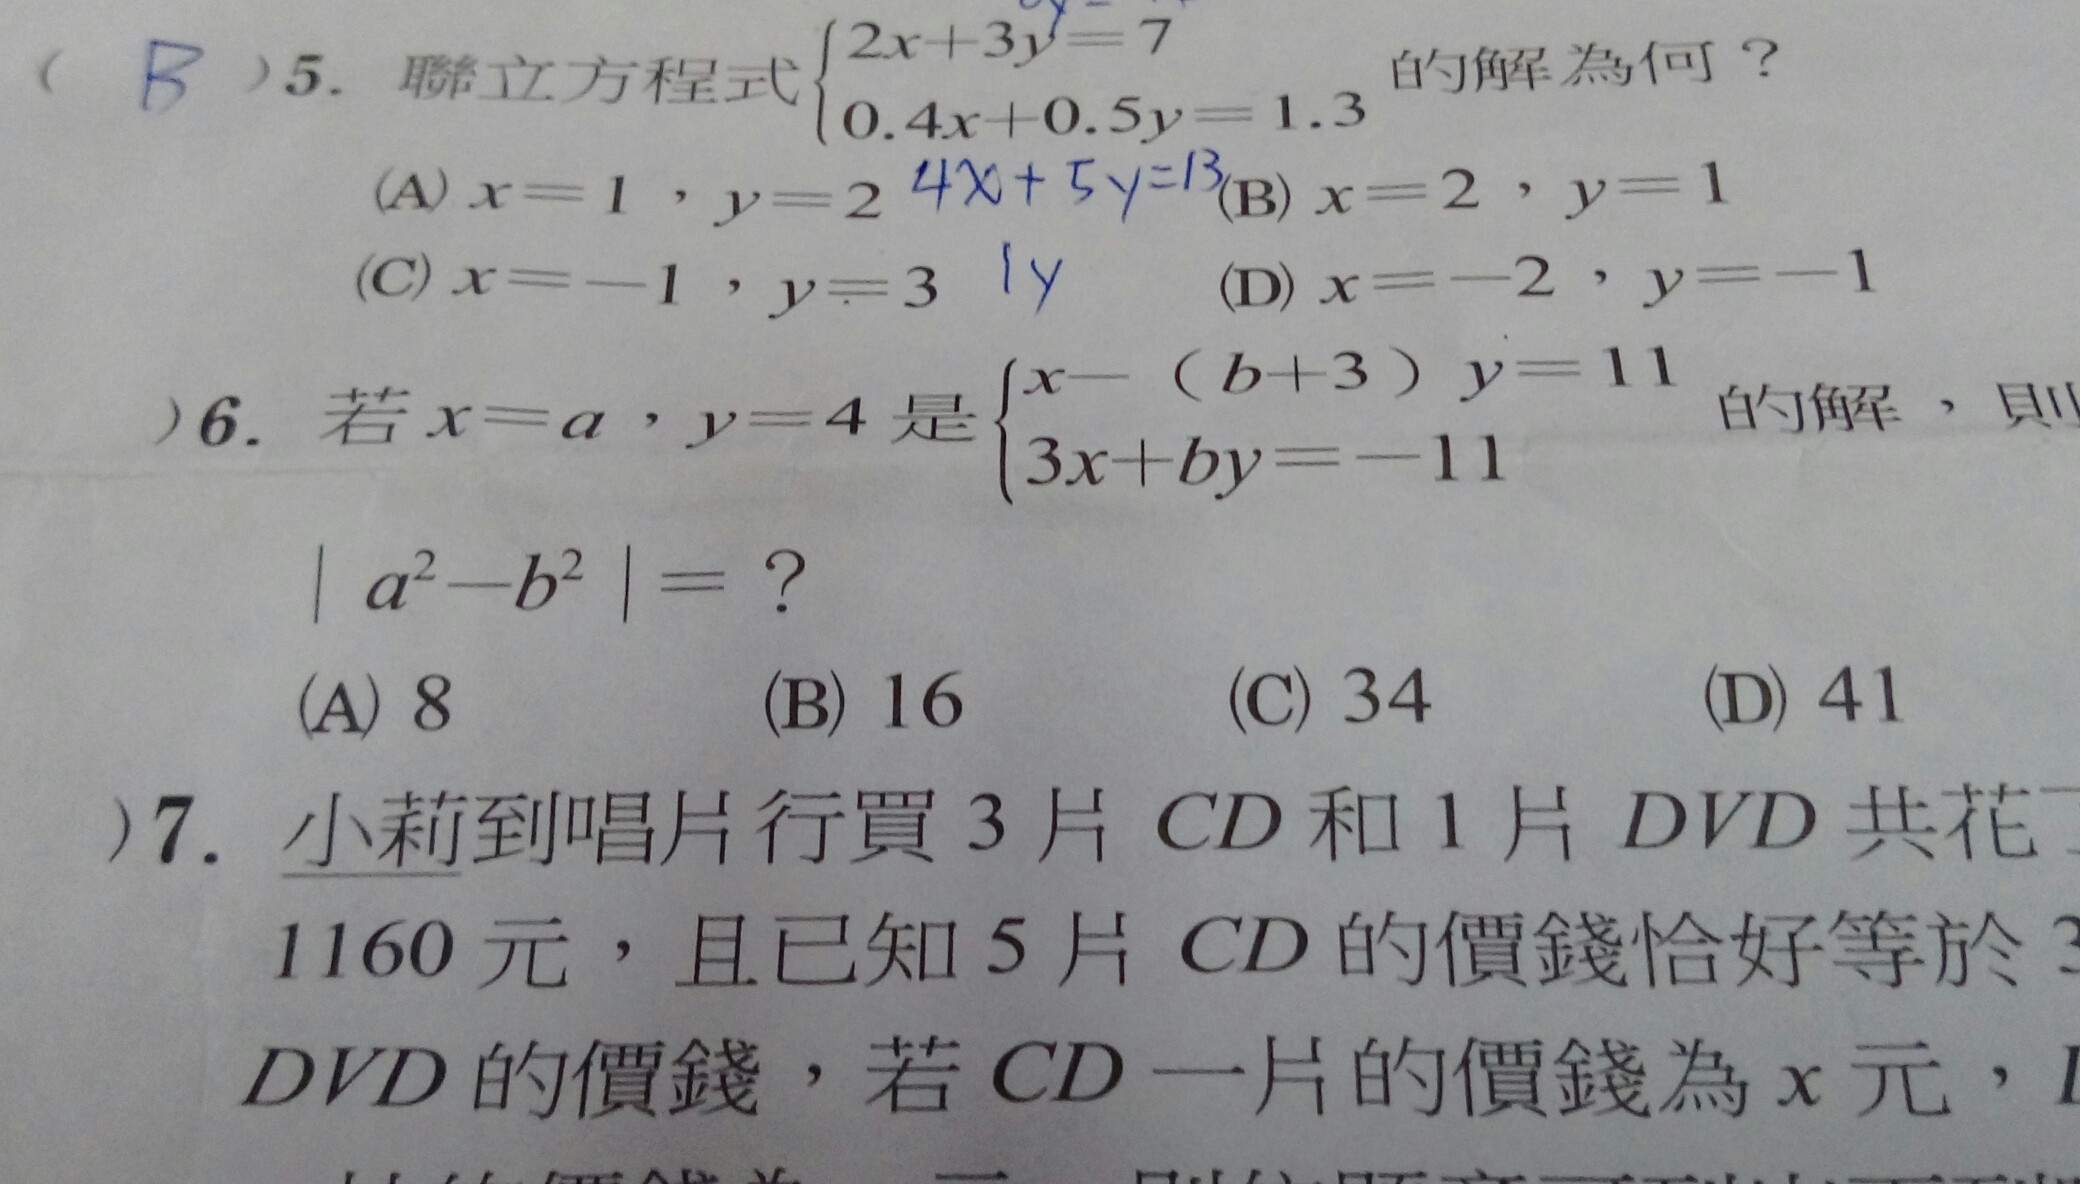 ( B )5. 聯立方程式{2x+3y=7 的解為何？
0.4x+0.5y=1.3
(A) x=1，y=2 4x+5y=13 (B) x=2，y=1
(C) x=-1，y=3 1y (D) x=-2，y=-1
)6. 若 x=a，y=4 是{x-（b+3）y=11 的解，則
3x+by=-11
| a²-b² |=？
(A) 8 (B) 16 (C) 34 (D) 41
)7. 小莉到唱片行買 3 片 CD 和 1 片 DVD 共花了
1160 元，且已知 5 片 CD 的價錢恰好等於 3
DVD 的價錢，若 CD 一片的價錢為 x 元，